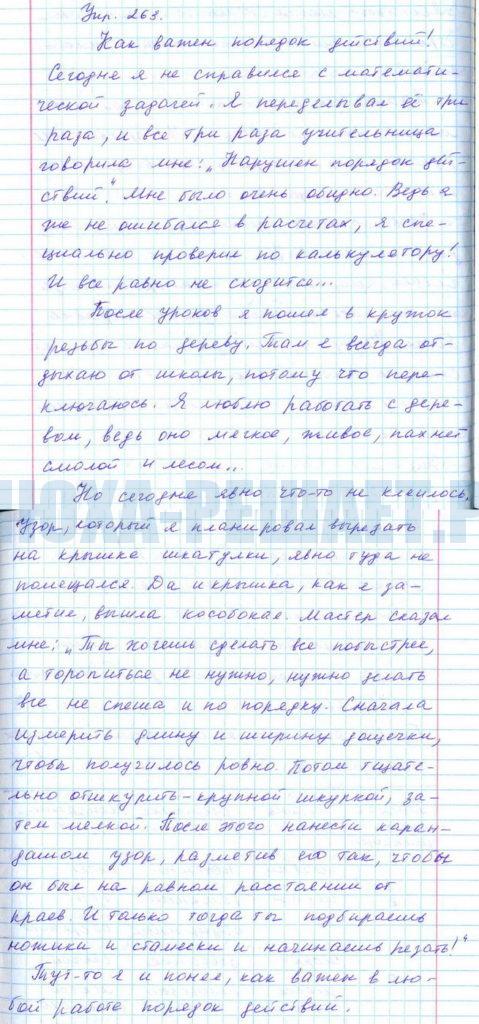 Упр. 263.
Как важен порядок действий!
Сегодня я не справился с математи-
ческой задачей. Я переделывал её три
раза, и все три раза учительница
говорила мне: „Нарушен порядок дей-
ствий". Мне было очень обидно. Ведь я
же не ошибался в расчетах, я спе-
циально проверил по калькулятору!
И все равно не сходится...
После уроков я пошел в кружок
резьбы по дереву. Там я всегда от-
дыхаю от школы, потому что пере-
ключаюсь. Я люблю работать с дере-
вом, ведь оно мягкое, живое, пахнет
смолой и лесом...
Но сегодня явно что-то не клеилось,
Узор, который я планировал вырезать
на крышке шкатулки, явно туда не
помещался. Да и крышка, как я за-
метил, вышла кособокая. Мастер сказал
мне: „Ты хочешь сделать все побыстрее,
а торопиться не нужно, нужно делать
все не спеша и по порядку. Сначала
измерить длину и ширину дощечки,
чтобы получилось ровно. Потом тщате-
льно отшкурить - крупной шкуркой, за-
тем мелкой. После этого нанести каран-
дашом узор, разметив его так, чтобы
он был на равном расстоянии от
краев. И только тогда ты подбираешь
ножики и стамески и начинаешь резать!"
Тут-то я и понял, как важен в лю-
бой работе порядок действий.